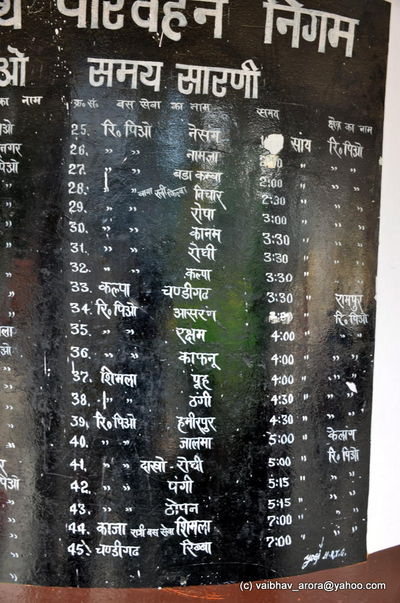 थ परिवहन निगम
ओ समय सारणी
का नाम क्र.सं. बस सेवा का नाम समय क्षेत्र का नाम
ओ 25. रि॰पिओ नेसंग सांय रि॰पिओ
नगर 26. " " नामज्ञा " "
पिओ 27. " " बडा कम्बा 2:00 " "
" 28. " " विचार 2:30 " "
" 29. " " रोपा 3:00 " "
" 30. " " कानम 3:30 " "
" 31. " " रोघी 3:30 " "
" 32. " " कल्पा 3:30 " "
" 33. कल्पा चण्डीगढ 3:30 " रामपुर
" 34. रि॰पिओ आसरंग " रि॰पिओ
ला 35. " " रक्षम 4:00 " " "
ओ 36. " " काफनू 4:00 " " "
" 37. शिमला पूह 4:00 " " "
" 38. " " ठंगी 4:30 " " "
" 39. रि॰पिओ हमीरपुर 4:30 " " "
40. " " जालमा 5:00 " केलांग
" 41. " " दाखो - रोघी 5:00 " रि॰पिओ
पिओ 42. " " पंगी 5:15 " " "
" 43. " " ठोपन 5:15 " " "
" 44. काजा रात्री बस सेवा शिमला 7:00 " " "
" 45. चण्डीगढ रिब्बा 7:00 " " "
(c) vaibhav_arora@yahoo.com